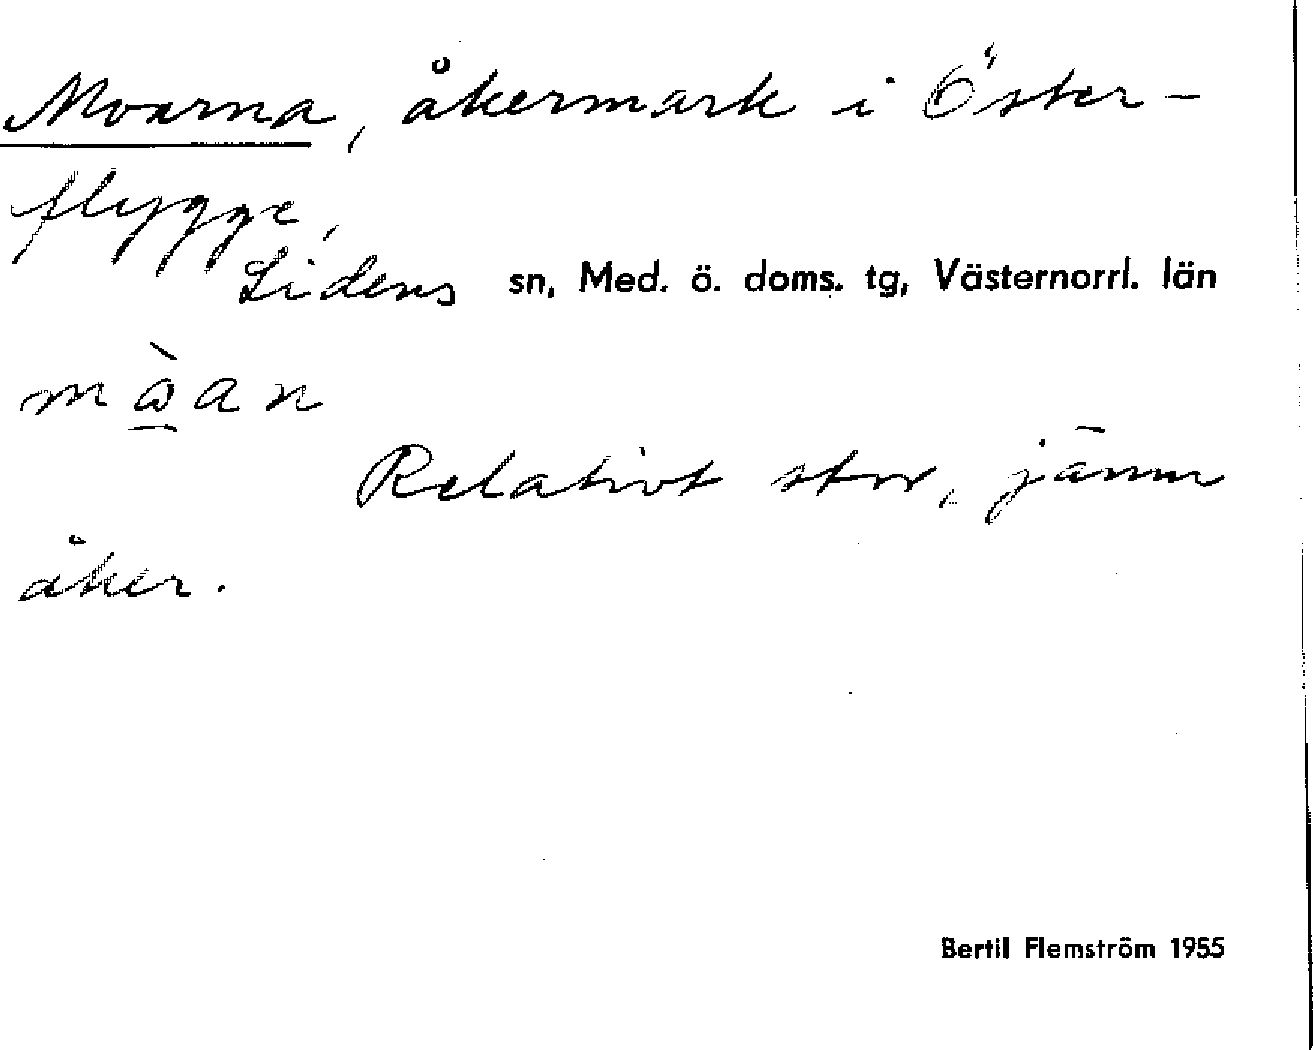 Moarna, åkermark i Öster-
flygge,
Lidens sn, Med. ö. doms. tg, Västernorrl. län
mὼ̲an
Relativt stor, jämn
åker.
Bertil Flemström 1955